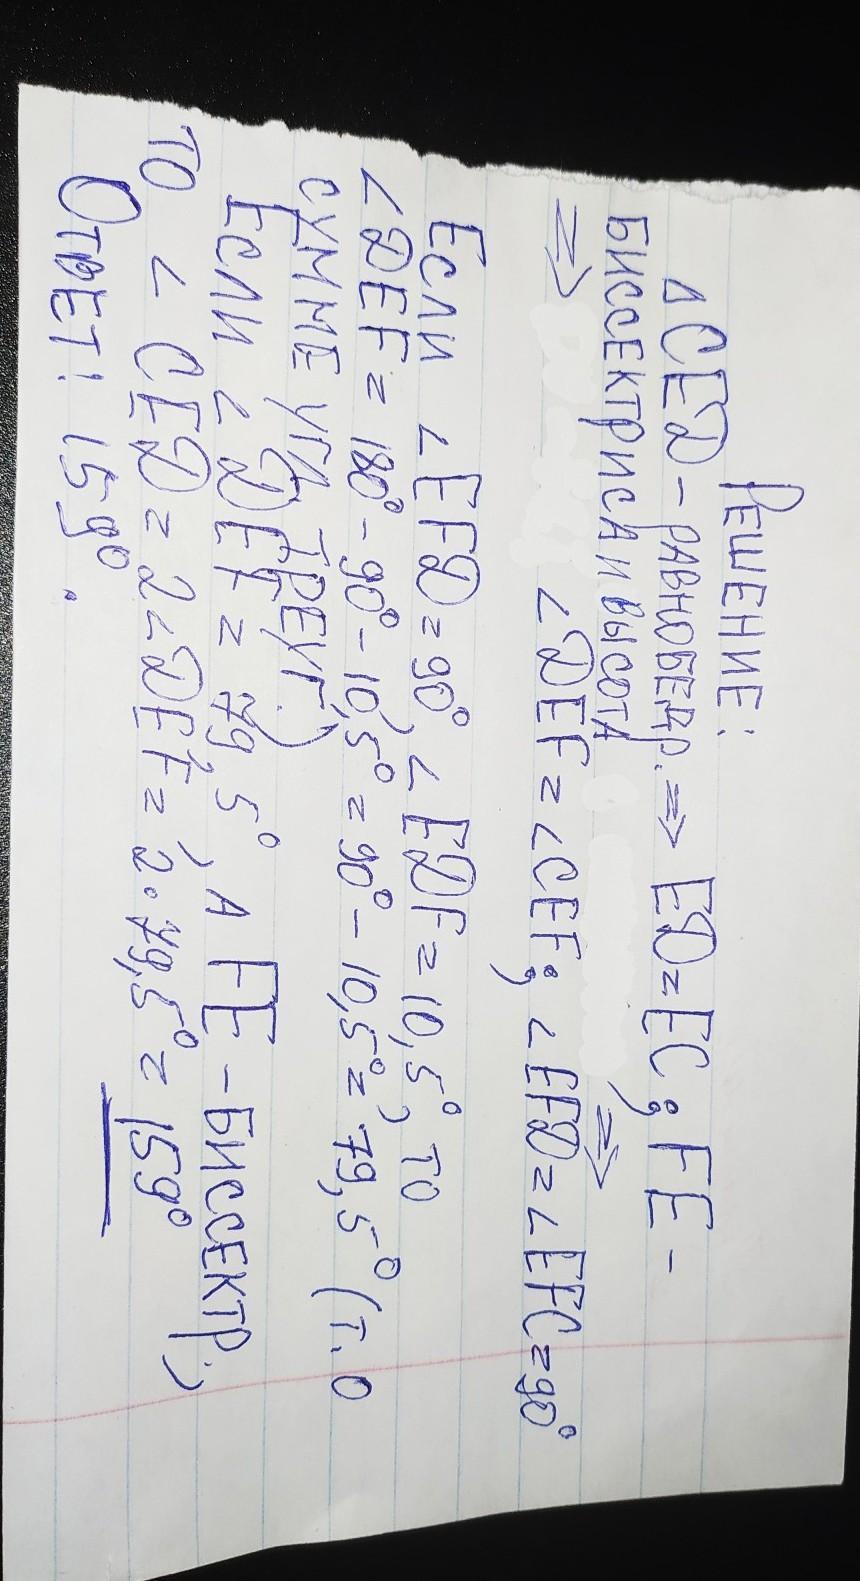 РЕШЕНИЕ:
△CED - РАВНОБЕДР. => ED = EC; FE -
БИССЕКТРИСА И ВЫСОТА =>
=> ∠DEF = ∠CEF; ∠EFD = ∠EFC = 90°
ЕСЛИ ∠EFD = 90° ∠EDF = 10,5°, ТО
∠DEF = 180° - 90° - 10,5° = 90° - 10,5° = 79,5° (Т. О
СУММЕ УГЛ. ТРЕУГ.)
ЕСЛИ ∠DEF = 79,5°, А FE - БИССЕКТР.,
ТО ∠CED = 2∠DEF = 2·79,5° = 159°
ОТВЕТ: 159°.